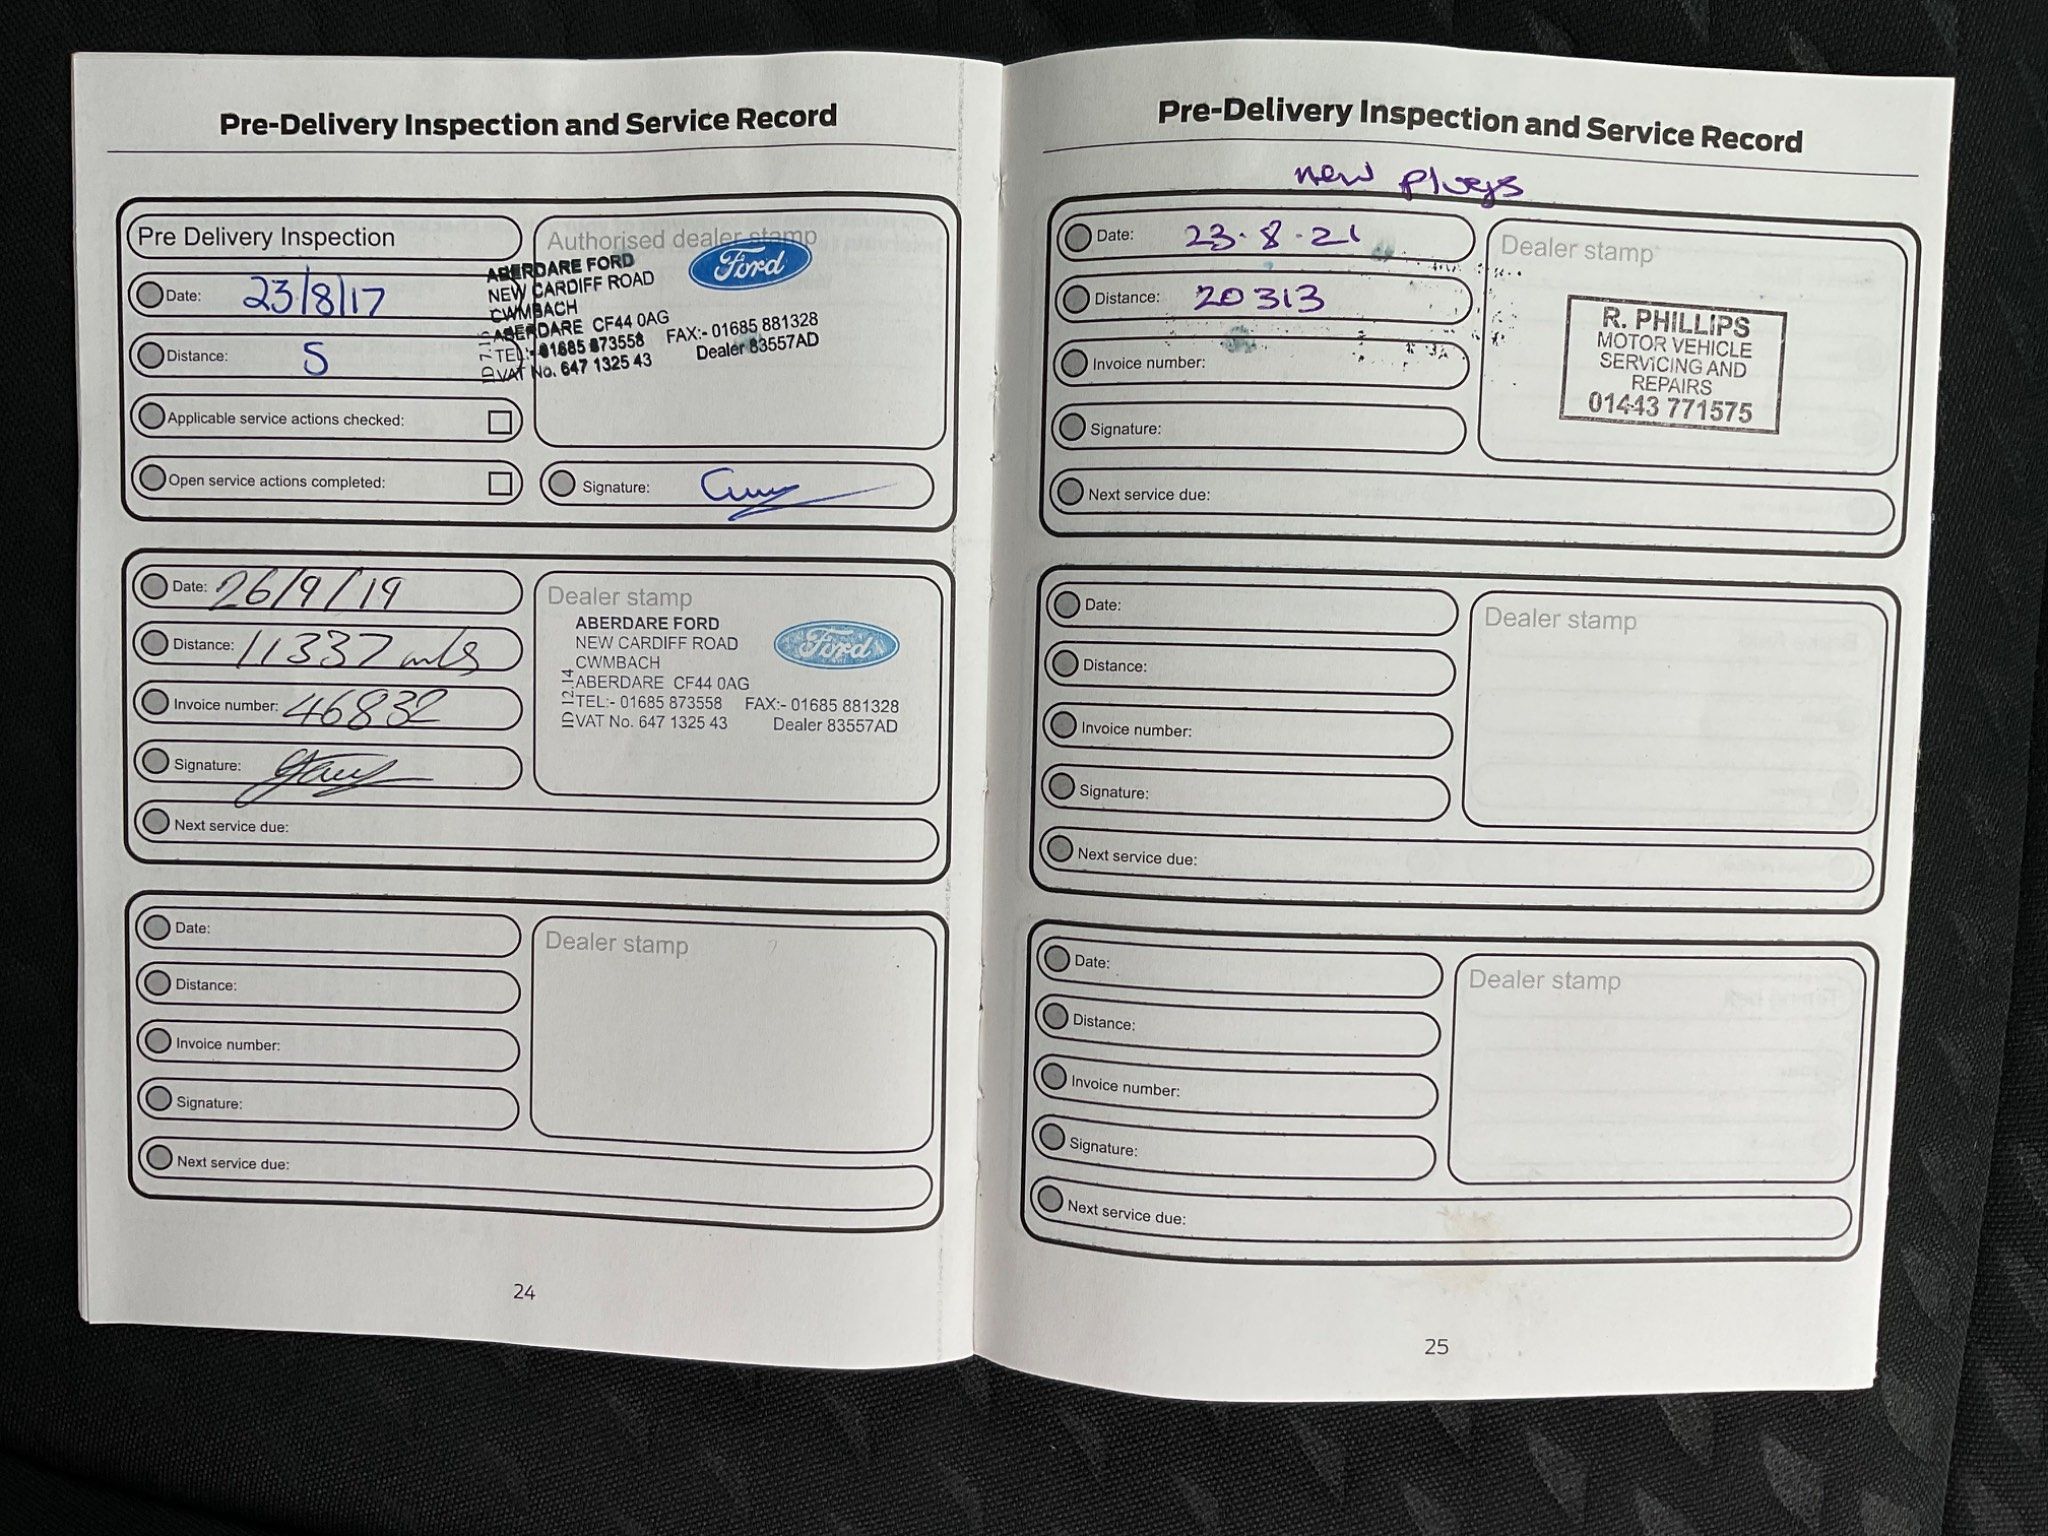 Pre-Delivery Inspection and Service Record
Pre Delivery Inspection
Date: 23/8/17
Distance: 5
Applicable service actions checked:
Open service actions completed:
Authorised dealer stamp
ABERDARE FORD
NEW CARDIFF ROAD
CWMBACH
ABERDARE CF44 0AG
TEL:- 01685 873558 FAX:- 01685 881328
VAT No. 647 1325 43 Dealer 83557AD
Ford
Signature:
Date: 26/9/19
Distance: 11337 mls
Invoice number: 46832
Signature:
Next service due:
Dealer stamp
ABERDARE FORD
NEW CARDIFF ROAD
CWMBACH
ABERDARE CF44 0AG
TEL:- 01685 873558 FAX:- 01685 881328
VAT No. 647 1325 43 Dealer 83557AD
ID 12.14
Ford
Date:
Distance:
Invoice number:
Signature:
Next service due:
Dealer stamp
24
Pre-Delivery Inspection and Service Record
new plugs
Date: 23.8.21
Distance: 20313
Invoice number:
Signature:
Next service due:
Dealer stamp
R. PHILLIPS
MOTOR VEHICLE
SERVICING AND
REPAIRS
01443 771575
Date:
Distance:
Invoice number:
Signature:
Next service due:
Dealer stamp
Date:
Distance:
Invoice number:
Signature:
Next service due:
Dealer stamp
25